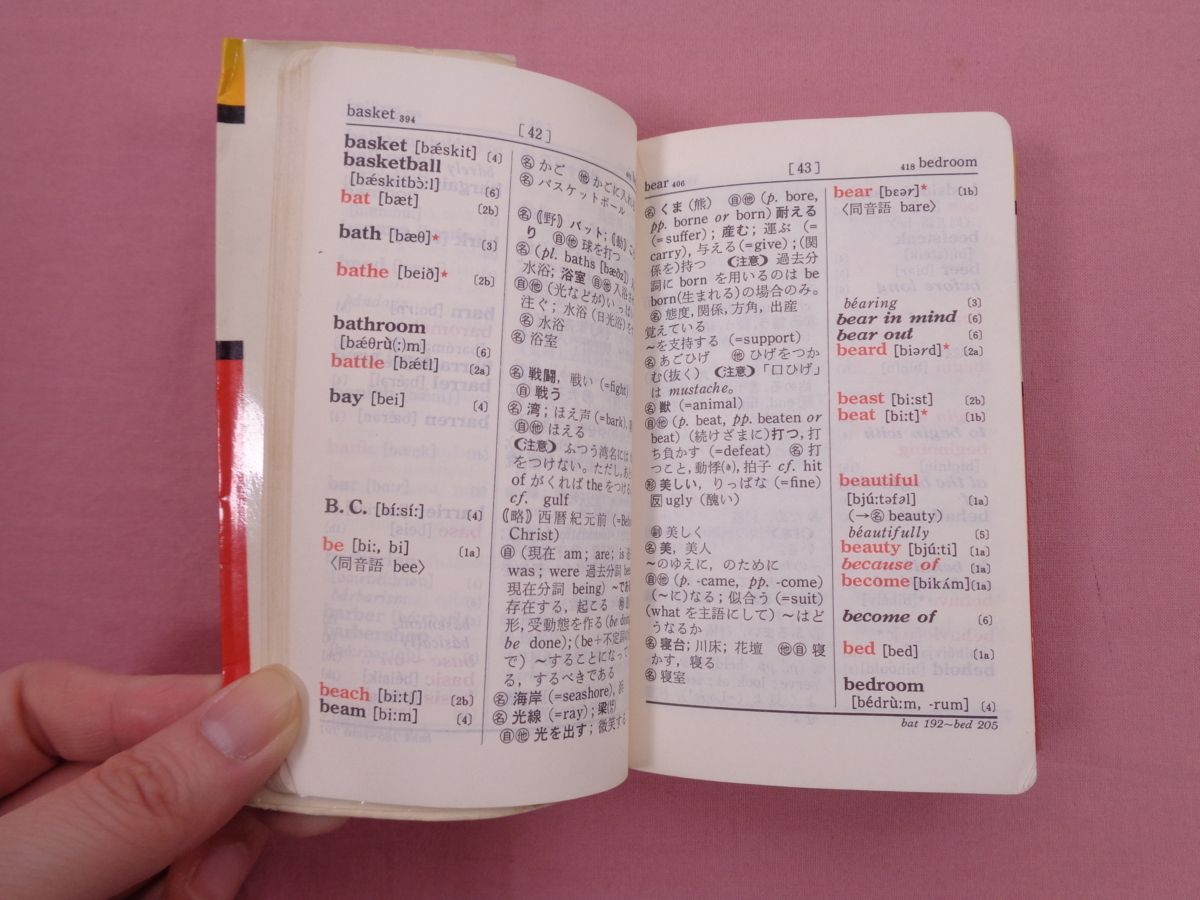 basket 394
[42]
basket [bǽskit] (4)
basketball
[bǽskitbɔ̀:l] (6)
bat [bæt] (2b)
bath [bæθ]* (3)
bathe [beið]* (2b)
bathroom
[bǽθrù(:)m] (6)
battle [bǽtl] (2a)
bay [bei] (4)
B. C. [bí:sí:] (4)
be [bi:, bi] (1a)
〈同音語 bee〉
beach [bi:tʃ] (2b)
beam [bi:m] (4)
名 かご 他 かごに入れ
名 バスケットボール
名 《野》バット;《動》こ
り 自他 球を打つ
名 (pl. baths [bæðz])
水浴; 浴室 自他 入浴
自他 (光などが)いっぱ
注ぐ; 水浴(日光浴)を
名 水浴
名 浴室
名 戦闘, 戦い (=fight)
自 戦う
名 湾; ほえ声 (=bark),
自他 ほえる
《注意》 ふつう湾名には
をつけない。ただし,あ
of がくれば the をつける
cf. gulf
《略》西暦紀元前 (=Be
Christ)
自 (現在 am; are; is
was; were 過去分詞
現在分詞 being) ~であ
存在する, 起こる
形, 受動態を作る (be
be done); (be+不定詞
で) ~することになって
る, するべきである
名 海岸 (=seashore), 浜
名 光線 (=ray); 梁
自他 光を出す; 微笑する
bear 406
[43]
418 bedroom
名 くま(熊) 自他 (p. bore,
pp. borne or born) 耐える
(=suffer); 産む; 運ぶ (=
carry), 与える(=give); (関
係を)持つ 《注意》 過去分
詞に born を用いるのは be
born(生まれる)の場合のみ。
名 態度, 関係, 方角, 出産
覚えている
~を支持する (=support)
名 あごひげ 他 ひげをつか
む(抜く) 《注意》「口ひげ」
は mustache。
名 獣 (=animal)
自他 (p. beat, pp. beaten or
beat) (続けざまに)打つ, 打
ち負かす (=defeat) 名 打
つこと, 動悸(き), 拍子 cf. hit
形 美しい, りっぱな (=fine)
反 ugly (醜い)
副 美しく
名 美, 美人
~のゆえに, のために
自他 (p. -came, pp. -come)
(~に)なる; 似合う (=suit)
(what を主語にして) ~はど
うなるか
名 寝台; 川床; 花壇 他自 寝
かす, 寝る
名 寝室
bear [bɛər]* (1b)
〈同音語 bare〉
béaring (3)
bear in mind (6)
bear out (6)
beard [biərd]* (2a)
beast [bi:st] (2b)
beat [bi:t]* (1b)
beautiful
[bjú:təfəl] (1a)
(→名 beauty)
béautifully (5)
beauty [bjú:ti] (1a)
because of (1a)
become [bikʌ́m] (1a)
become of (6)
bed [bed] (1a)
bedroom
[bédrù:m, -rum] (4)
bat 192~bed 205